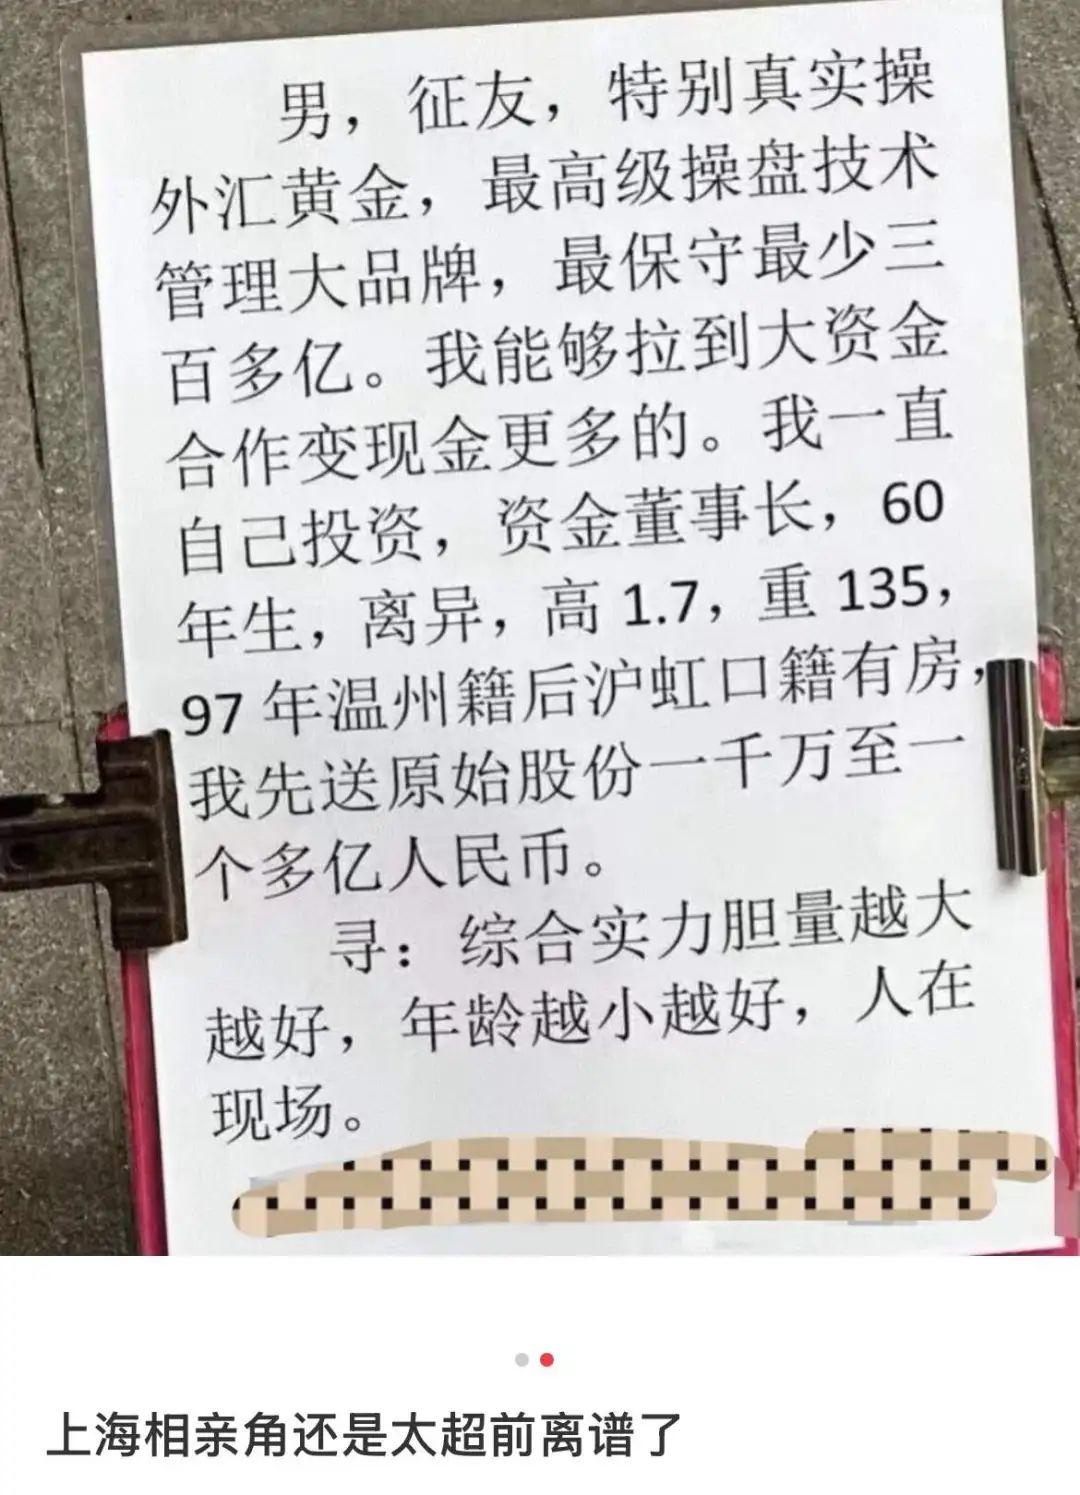 男，征友，特别真实操
外汇黄金，最高级操盘技术
管理大品牌，最保守最少三
百多亿。我能够拉到大资金
合作变现金更多的。我一直
自己投资，资金董事长，60
年生，离异，高1.7，重135，
97年温州籍后沪虹口籍有房，
我先送原始股份一千万至一
个多亿人民币。
寻：综合实力胆量越大
越好，年龄越小越好，人在
现场。
上海相亲角还是太超前离谱了